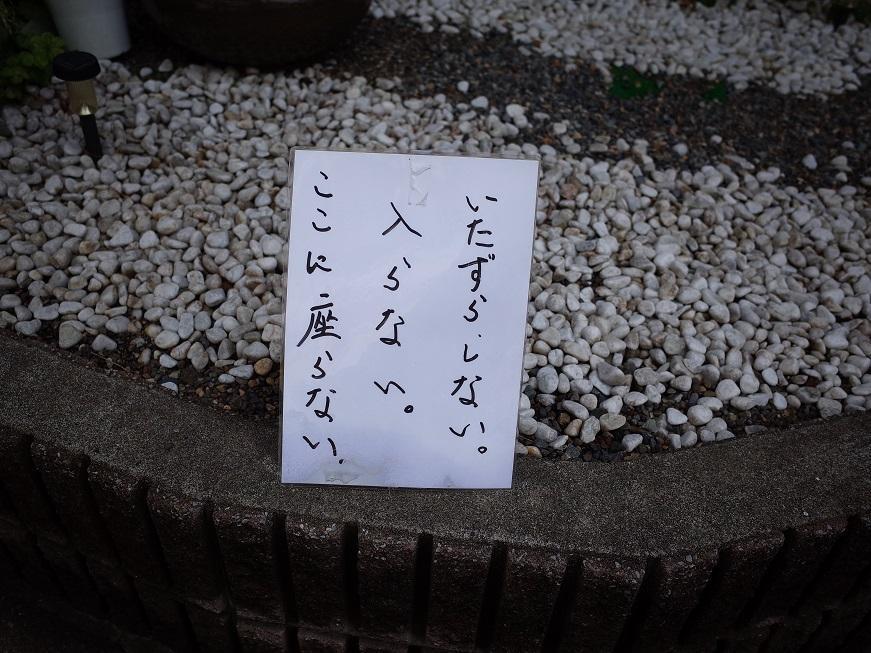 いたずらしない。
入らない。
ここに座らない.